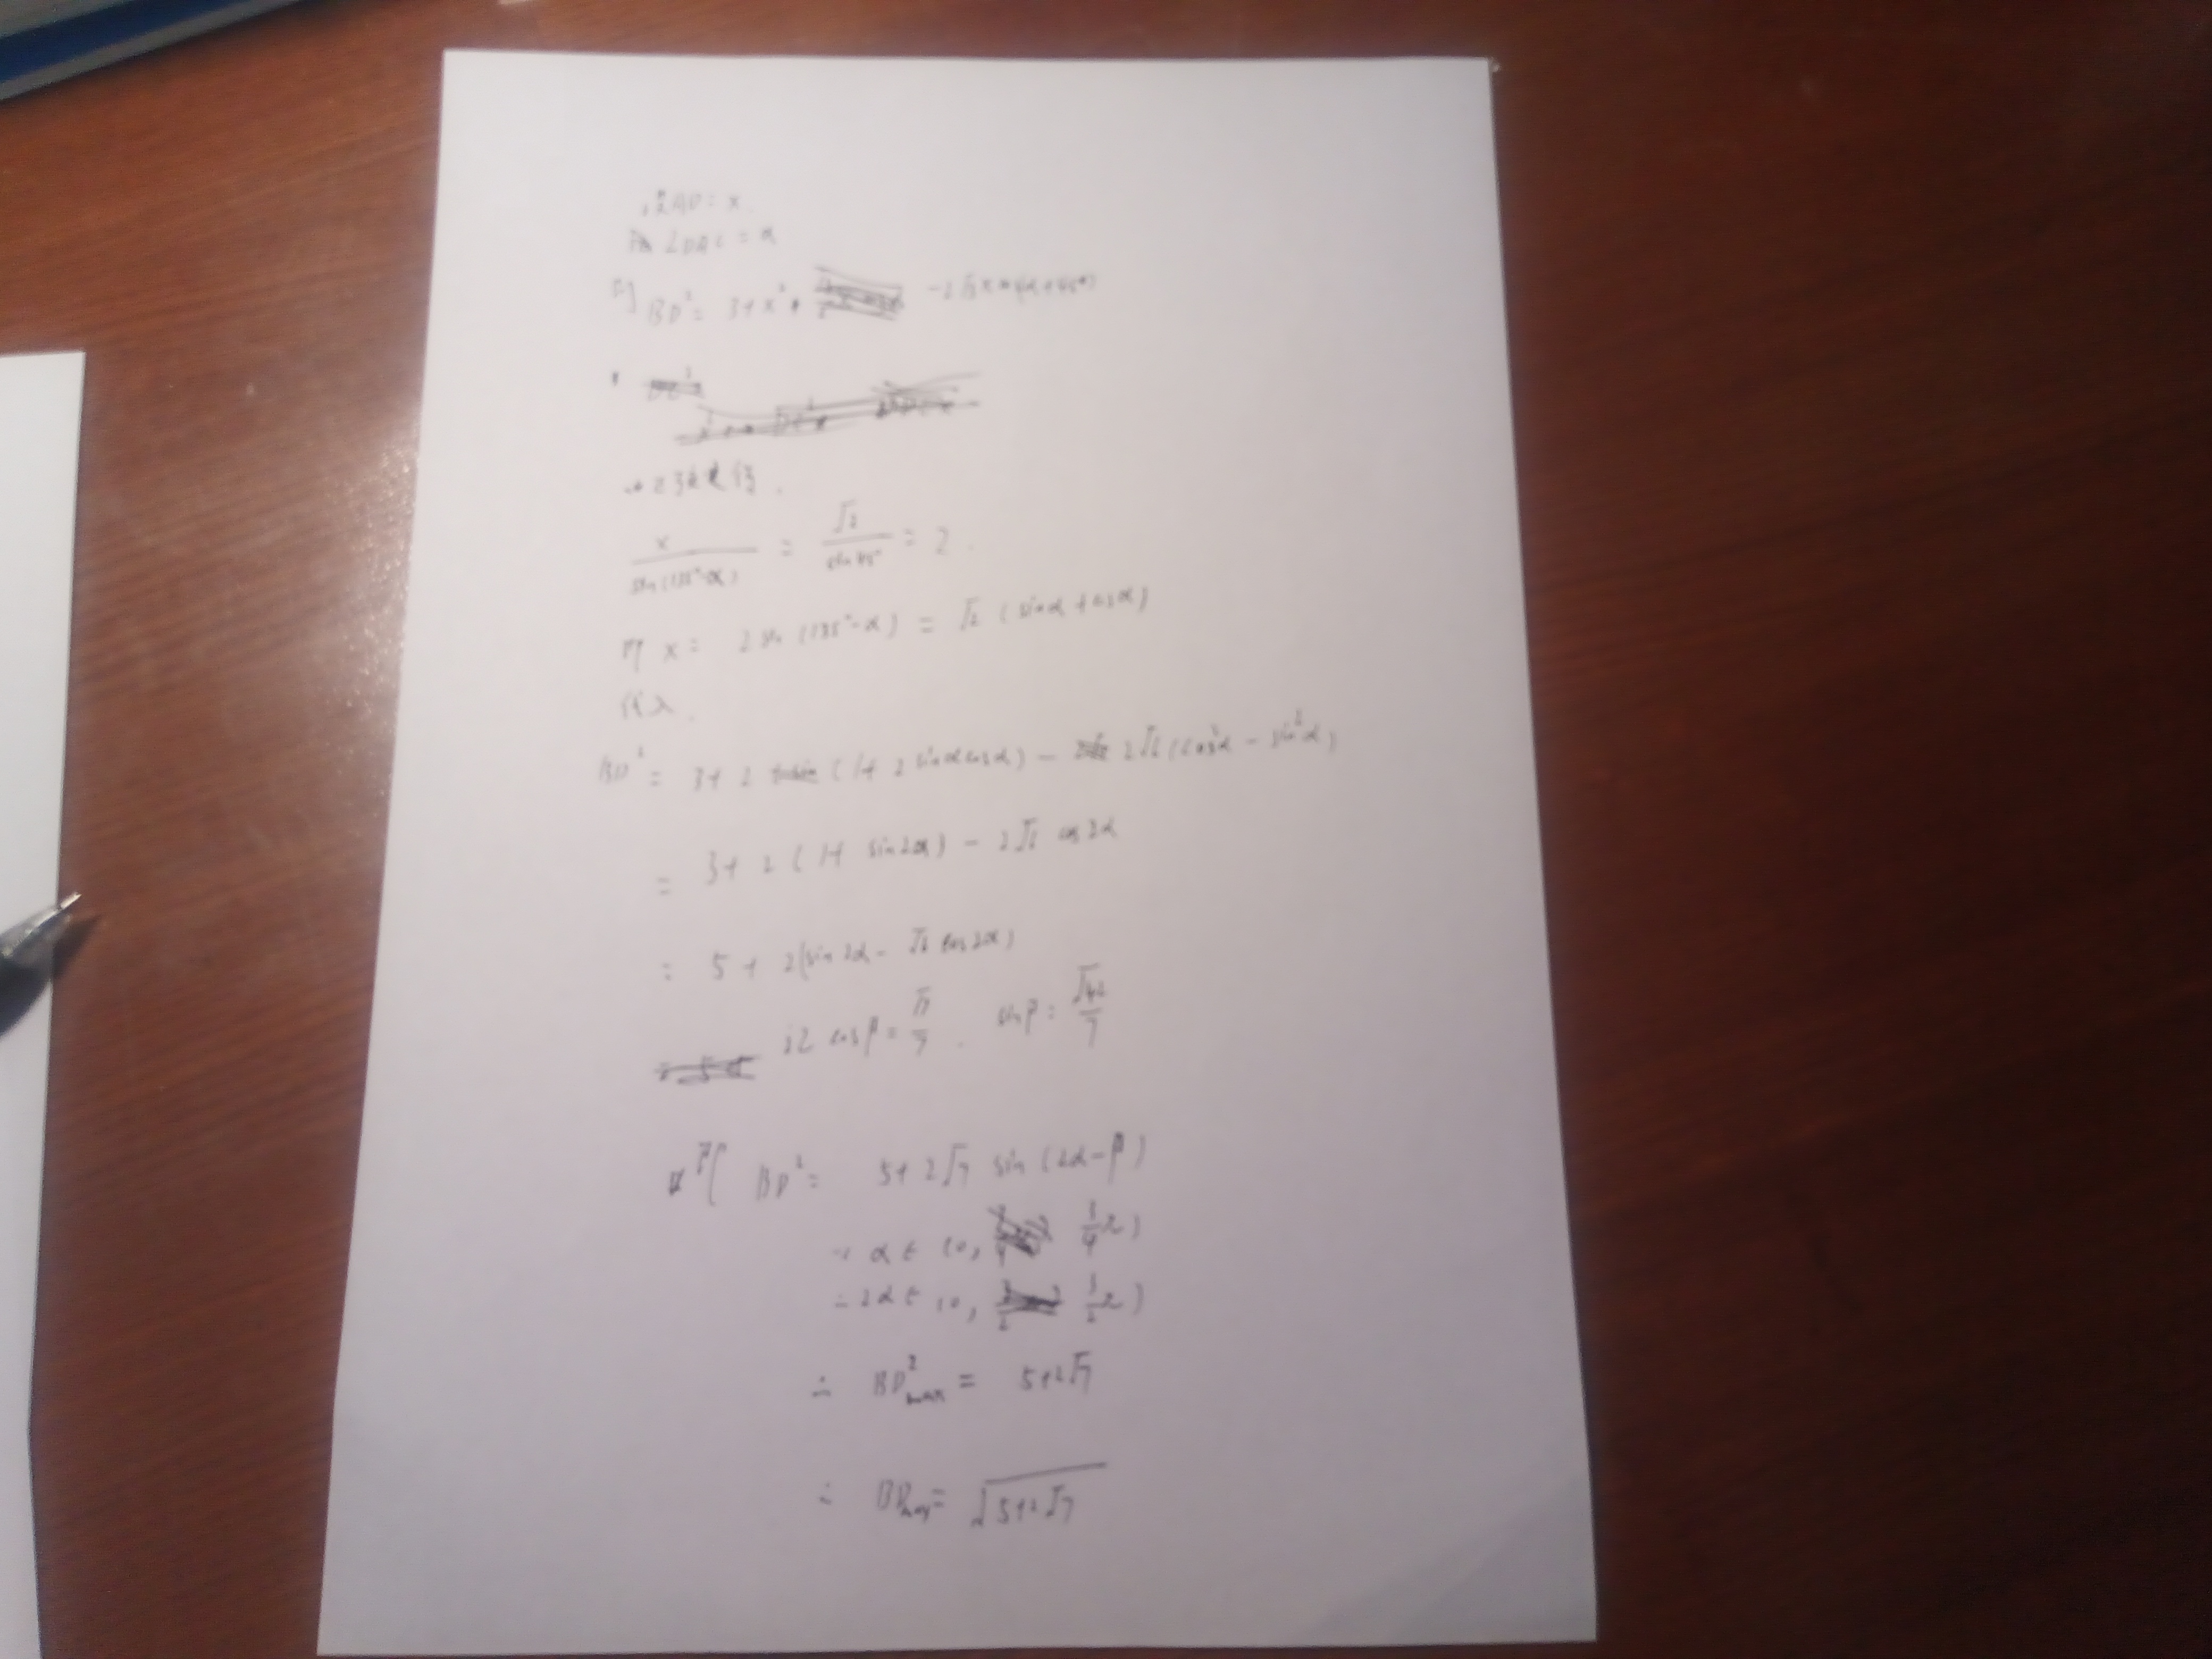 设AD=x.
∠DAC=α
则 BD²= 3+x² -2√3xcos(α+45°)
由正弦定理得.
x/sin(135°-α) = √2/sin45° = 2.
即 x= 2sin(135°-α) = √2(sinα+cosα)
代入.
BD²= 3+2(1+2sinαcosα) - 2√6(cos²α-sin²α)
= 3+2(1+sin2α) - 2√6 cos2α
= 5+2(sin2α-√6cos2α)
记 cosβ=√7/7. sinβ=√42/7
则 BD²= 5+2√7 sin(2α-β)
∵ α∈(0, 3/4π)
∴ 2α∈(0, 3/2π)
∴ BD²max = 5+2√7
∴ BDmax= √(5+2√7)